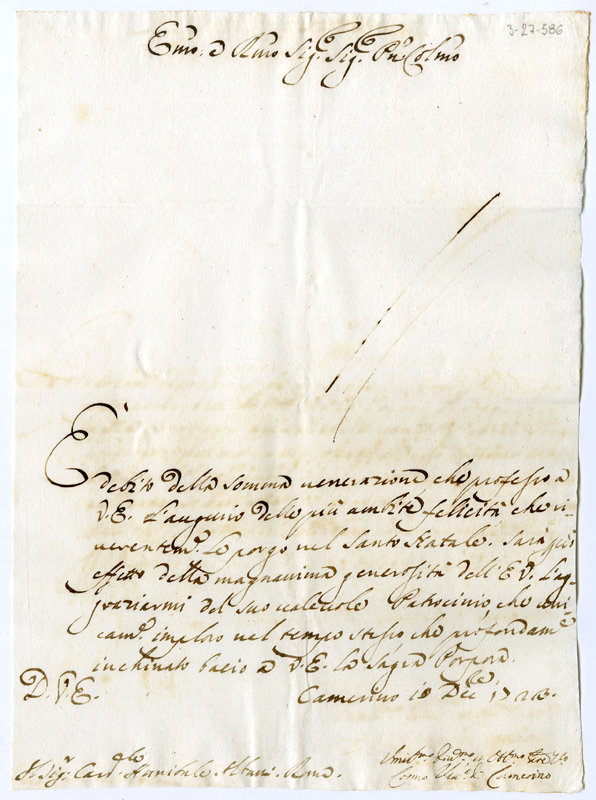 3-27-586
Emo: e Rmo Sig.re Sig.re Pne Colmo
È
debito della somma venerazione, che professo a
V.E. l'augurio delle più ambite felicità che ri-
verentem.e Le porgo nel Santo Natale. Sarà poi
effetto della magnanima generosità dell'E.V. l'ag-
graziarmi del suo valevole Patrocinio, che
cam.e imploro nel tempo stesso che profondam.e
inchinato bacio a V.E. la Sagra Porpora.
D.V.E.
Camerino 10 Dec.bre
S.r Sig.r Card.le Hannibale Albani. Roma.
Camerino